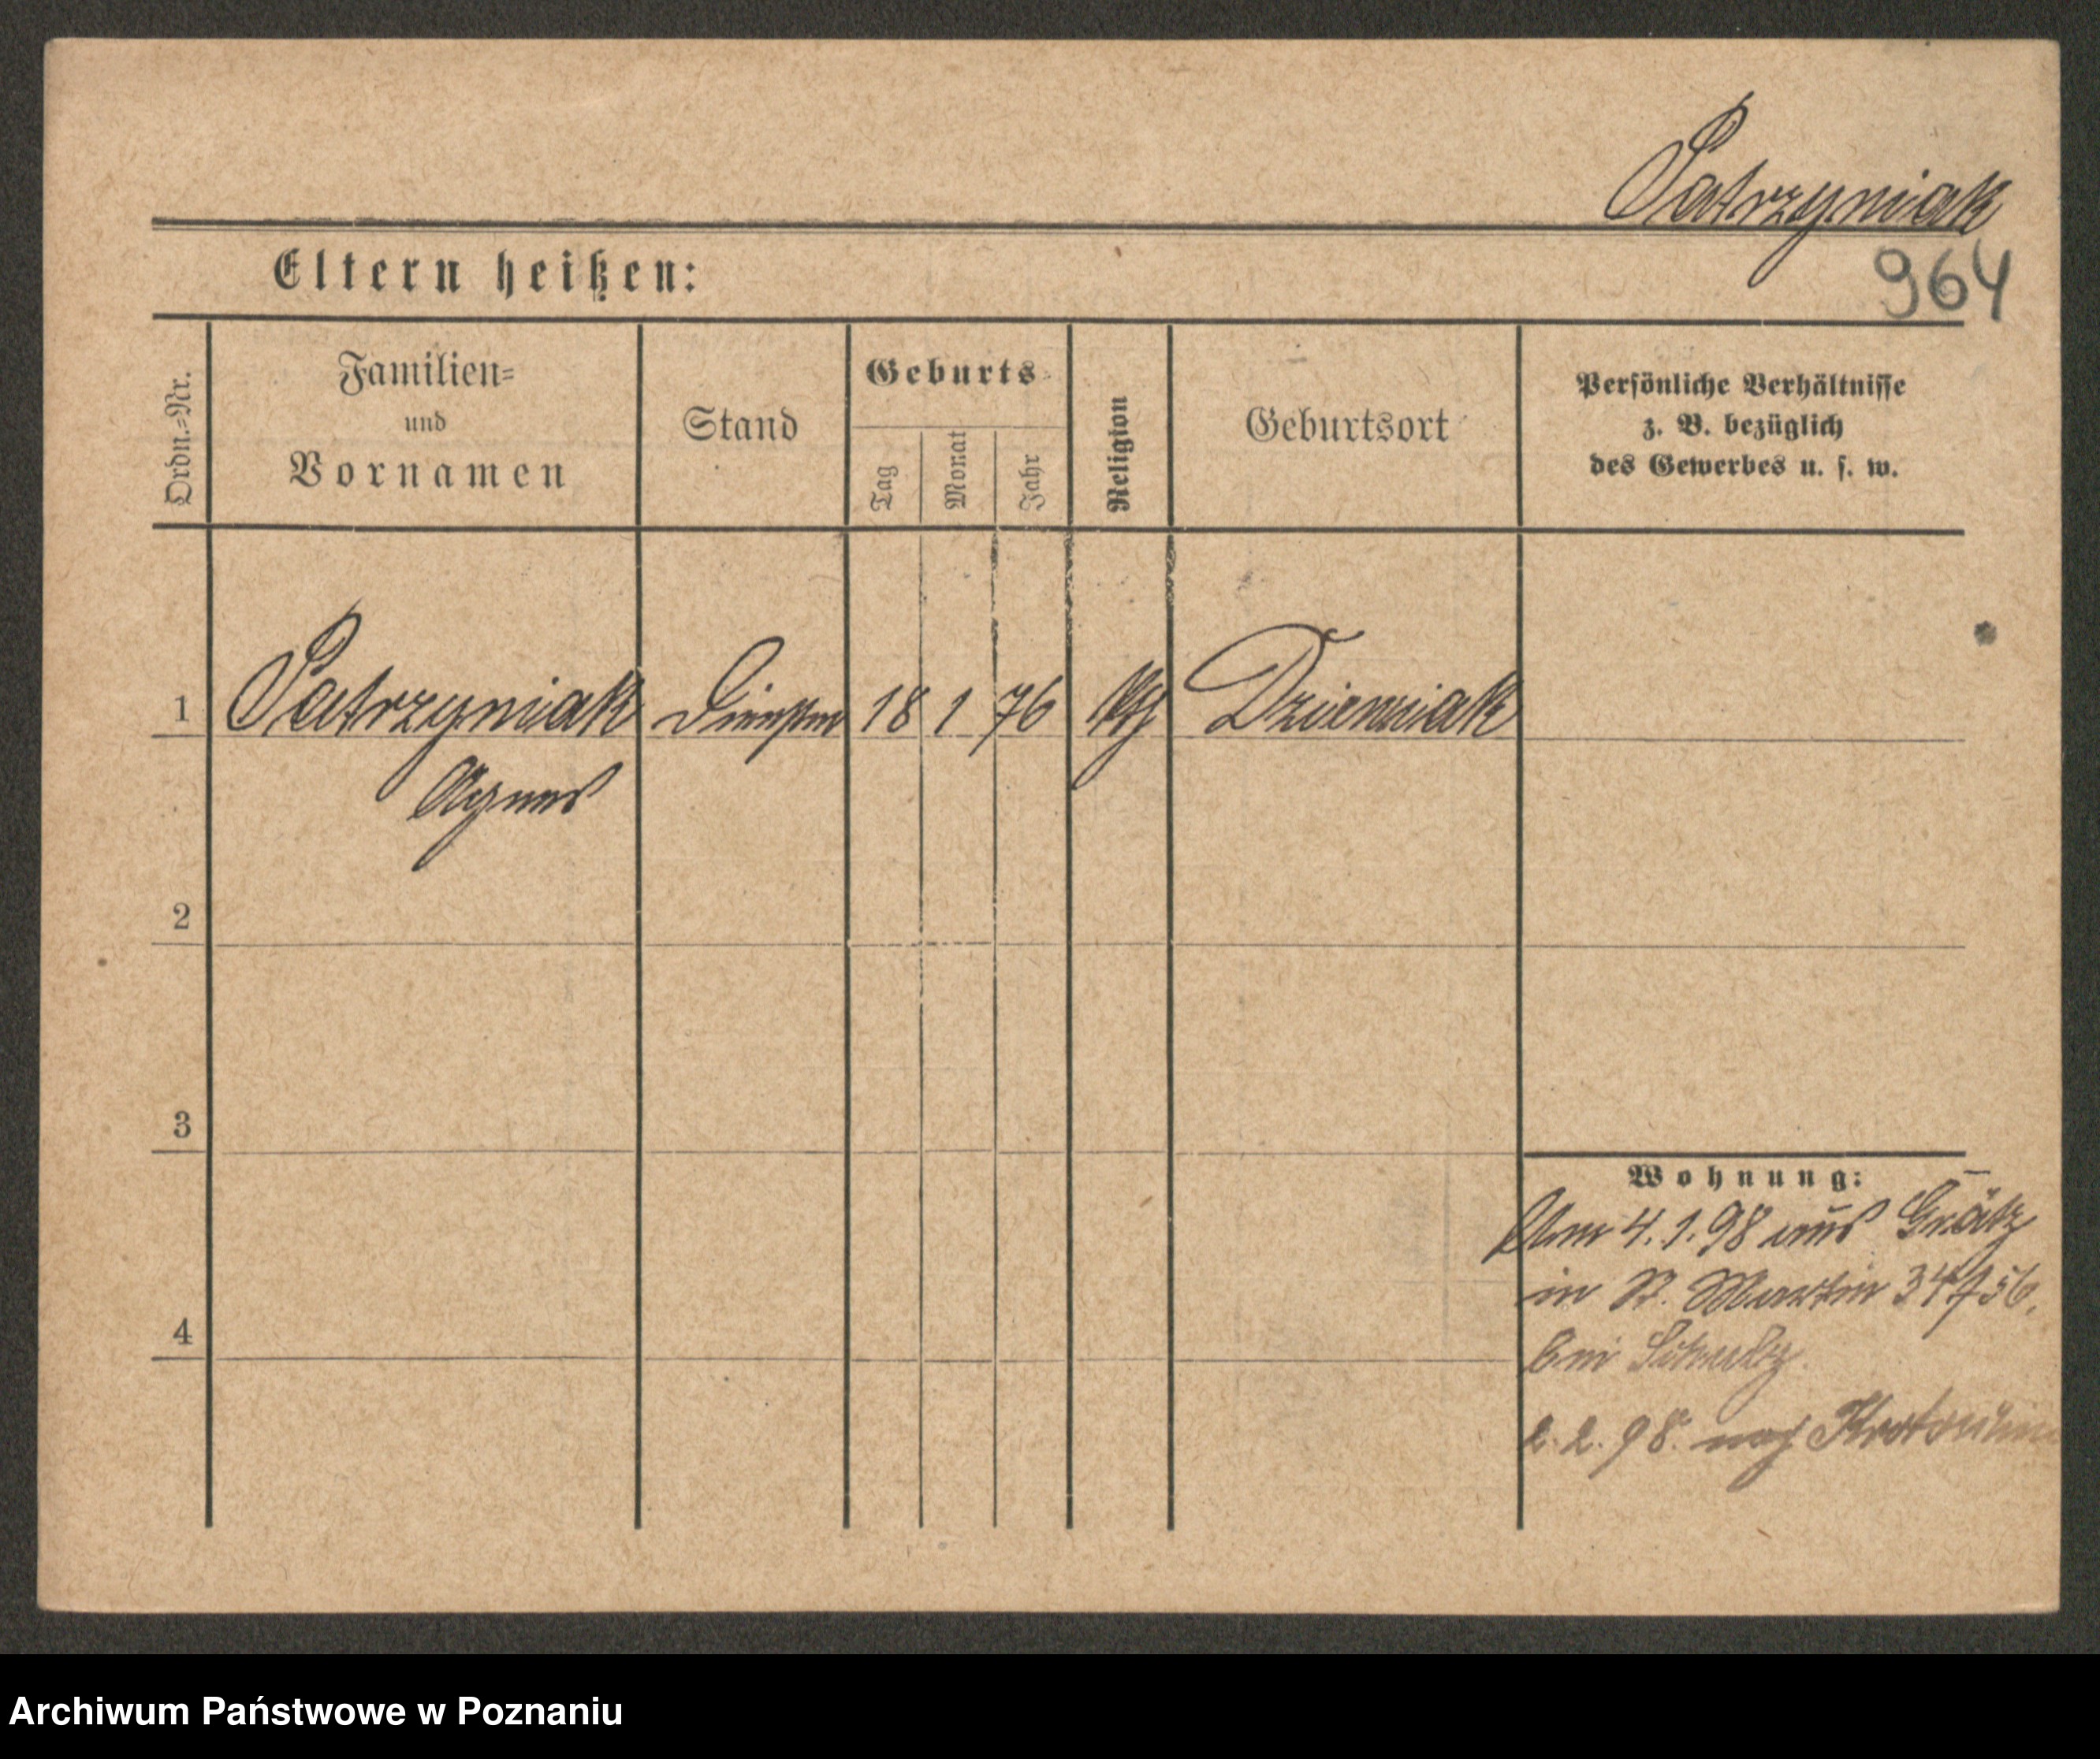 Patrzyniak
964
Eltern heißen:
Ordn.-Nr.
Familien-
und
Vornamen
Stand
Geburts
Tag
Monat
Jahr
Religion
Geburtsort
Persönliche Verhältnisse
z. B. bezüglich
des Gewerbes u. s. w.
1 Patrzyniak 18 1 76 kth Dzierniak
Agnes
2
3
4
Wohnung:
Am 4.1.98 aus Grätz
in St. Martin
bei Schulz.
2.2.98. nach
Archiwum Państwowe w Poznaniu